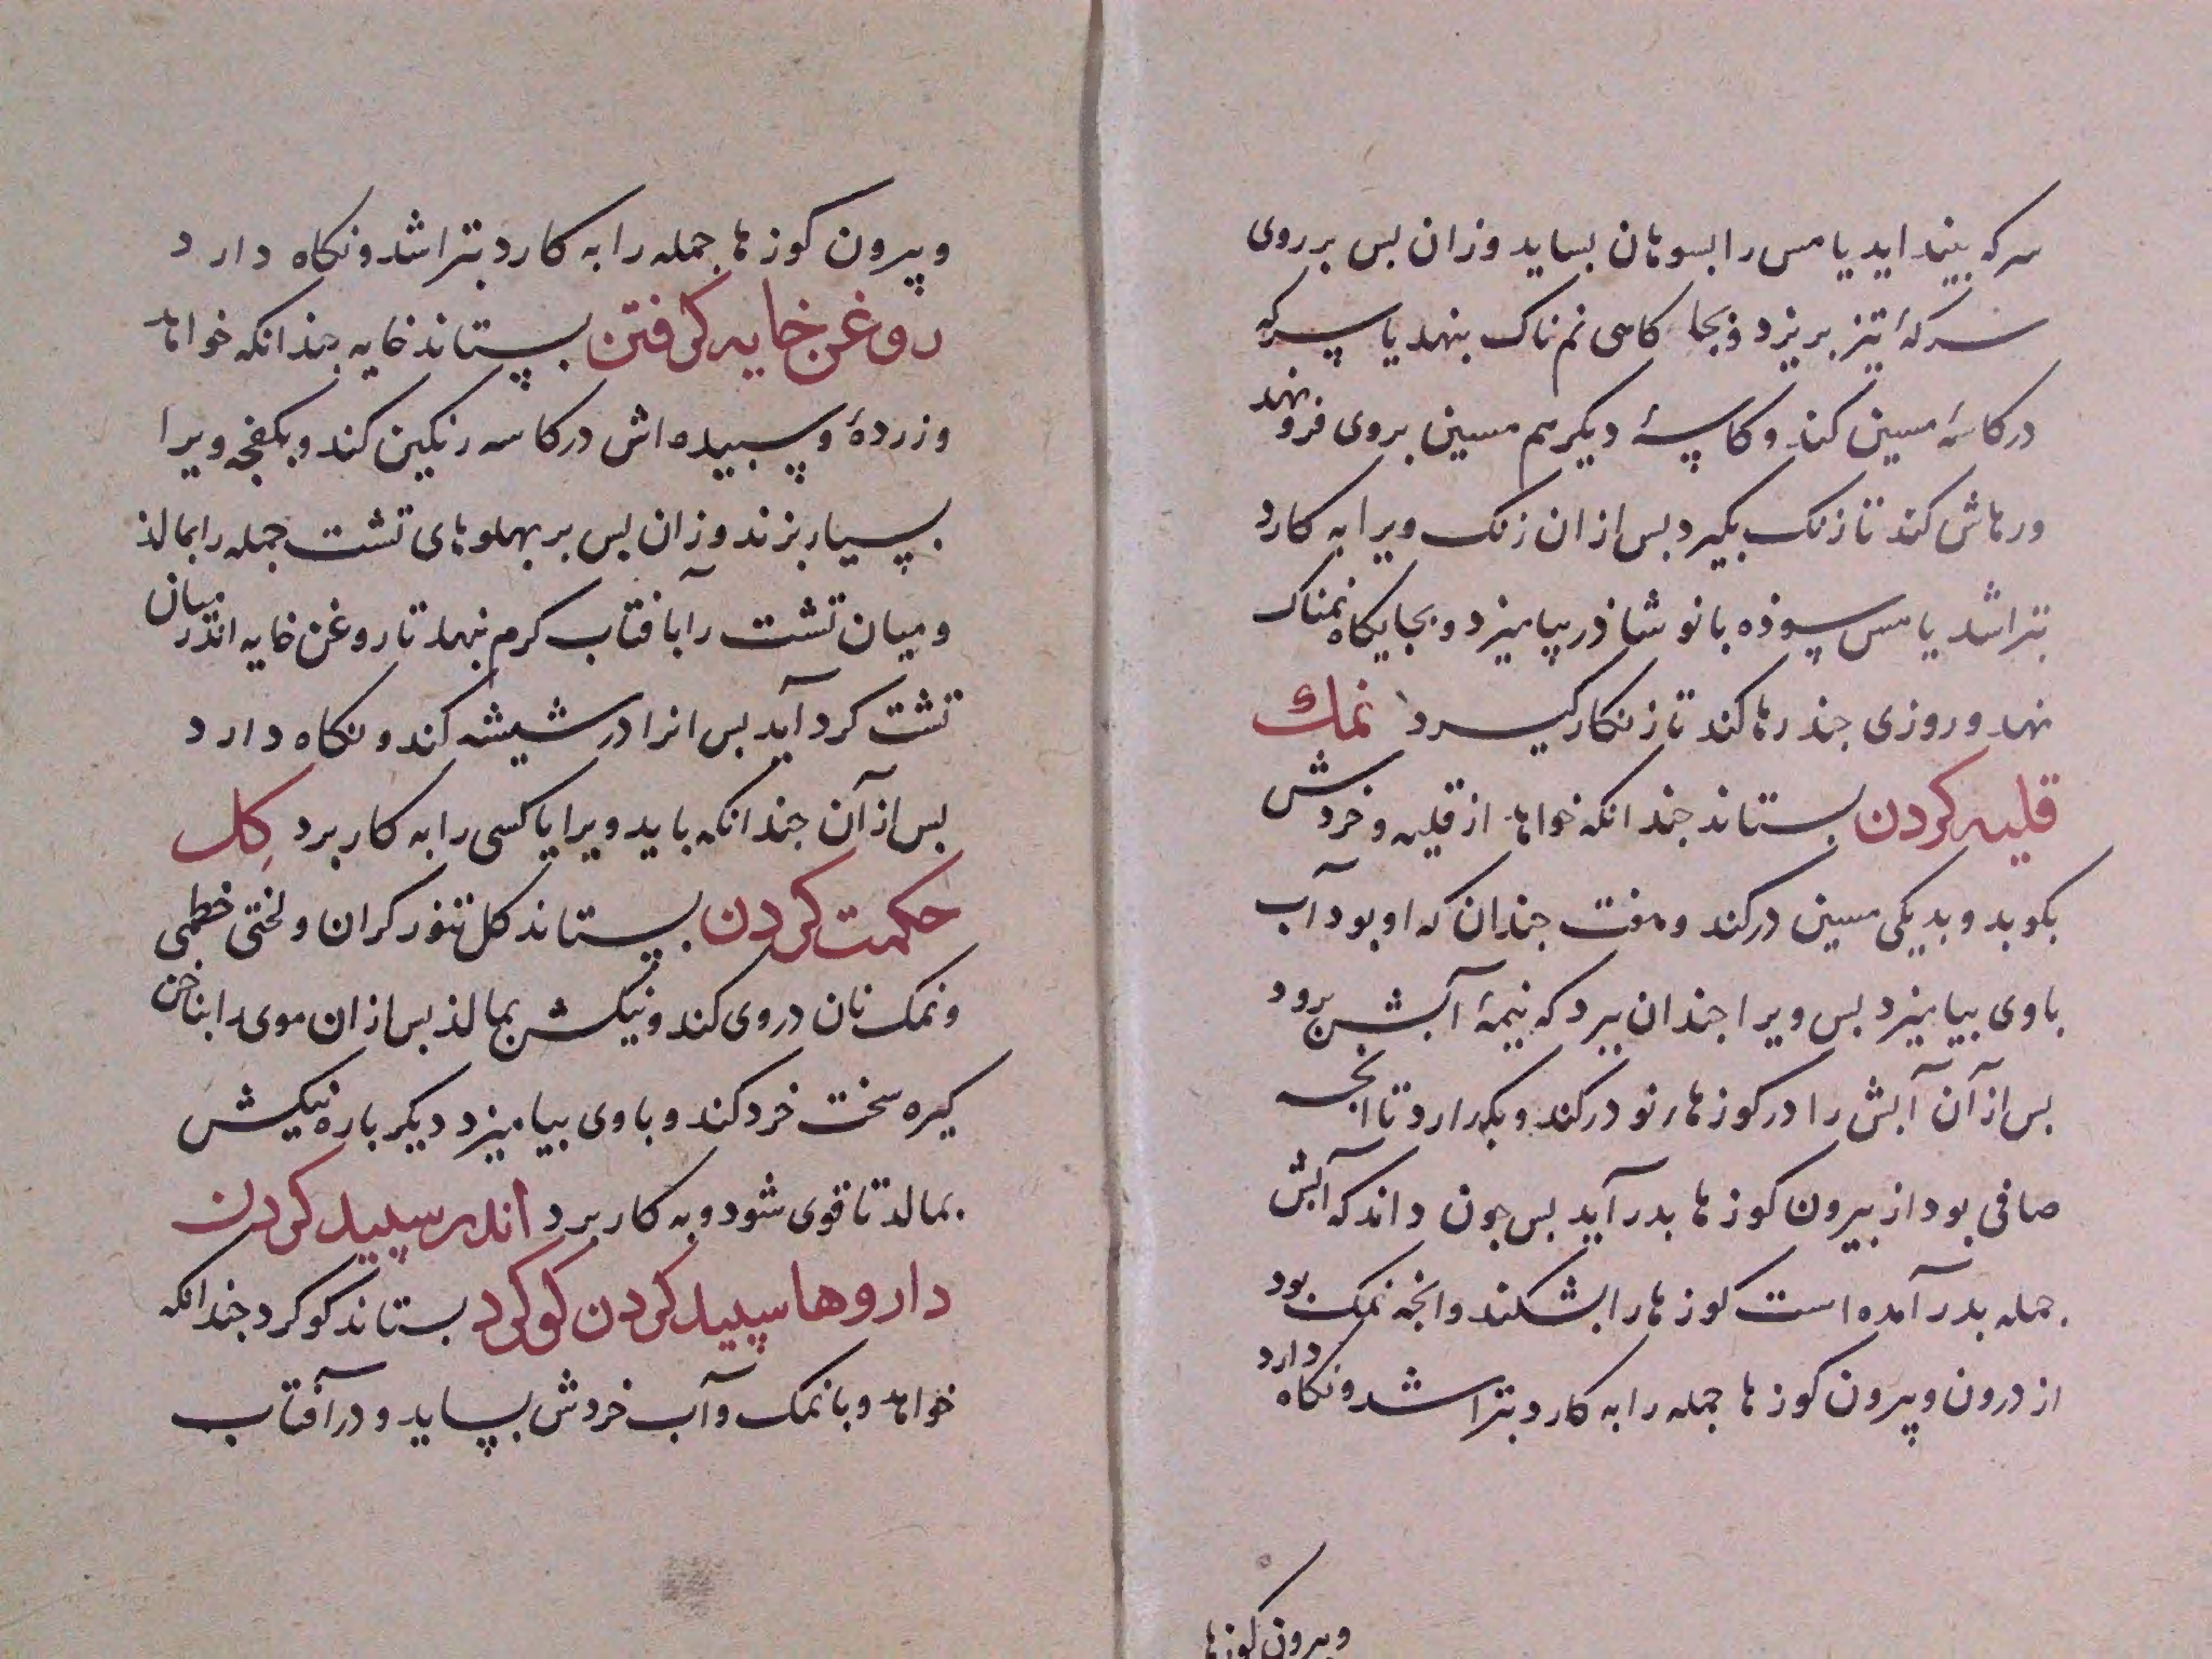 سرکه بینداید یا مس را بسوهان بساید وزان بس بر روی
سرکهٔ تیز بریزد وبجا کاهی نم ناک بنهد یا سرکه
در کاسهٔ مسین کند و کاسهٔ دیکر هم مسین بروی فرو نهد
ورهاش کند تا زنک بکیرد بس از ان زنک ویرا به کارد
بتراشد یا مس سوذه با نوشاذر بیامیزد و بجایکاه نمناک
نهد و روزی جند رها کند تا زنکار کیرد نمك
قلیه کردن بستاند جندانکه خواهد از قلیه و خردش
بکوبد و بدیکی مسین درکند وهفت جندان که او بود آب
باوی بیامیزد بس ویرا جندان ببزد که نیمهٔ آبش برود
بس از آن آبش را در کوزهاء نو درکند و بکذارد تا انجه
صافی بود از بیرون کوزها بدر آید بس جون داند که آبش
جمله بدر آمده است کوزها را بشکند وانجه نمک بود
از درون وبیرون کوزها جمله را به کارد بتراشد ونکاه دارد
وبیرون کوزها
وبیرون کوزها جمله را به کارد بتراشد ونکاه دارد
روغن خایه کرفتن بستاند خایه جندانکه خواهد
وزردهٔ وسبیده اش در کاسه رنکین کند و بکفجه ویرا
بسیار بزند وزان بس بر بهلوهای تشت جمله را بمالذ
ومیان تشت را بآفتاب کرم نهد تا روغن خایه اندر میان
تشت کرد آید بس انرا در شیشه کند ونکاه دارد
بس از آن جندانکه باید ویرا یا کسی را به کار برد کِل
حکمت کردن بستاند کل تنور کران ولختی خطمی
ونمک نان در وی کند ونیکش بمالذ بس از ان موی را بناخن
کیره سخت خرد کند و باوی بیامیزد دیکر باره نیکش
بمالد تا قوی شود وبه کار برد اندر سپید کردن
داروها سپید کردن کوکرد بستاند کوکرد جندانکه
خواهد وبا نمک وآب خردش بساید و در آفتاب